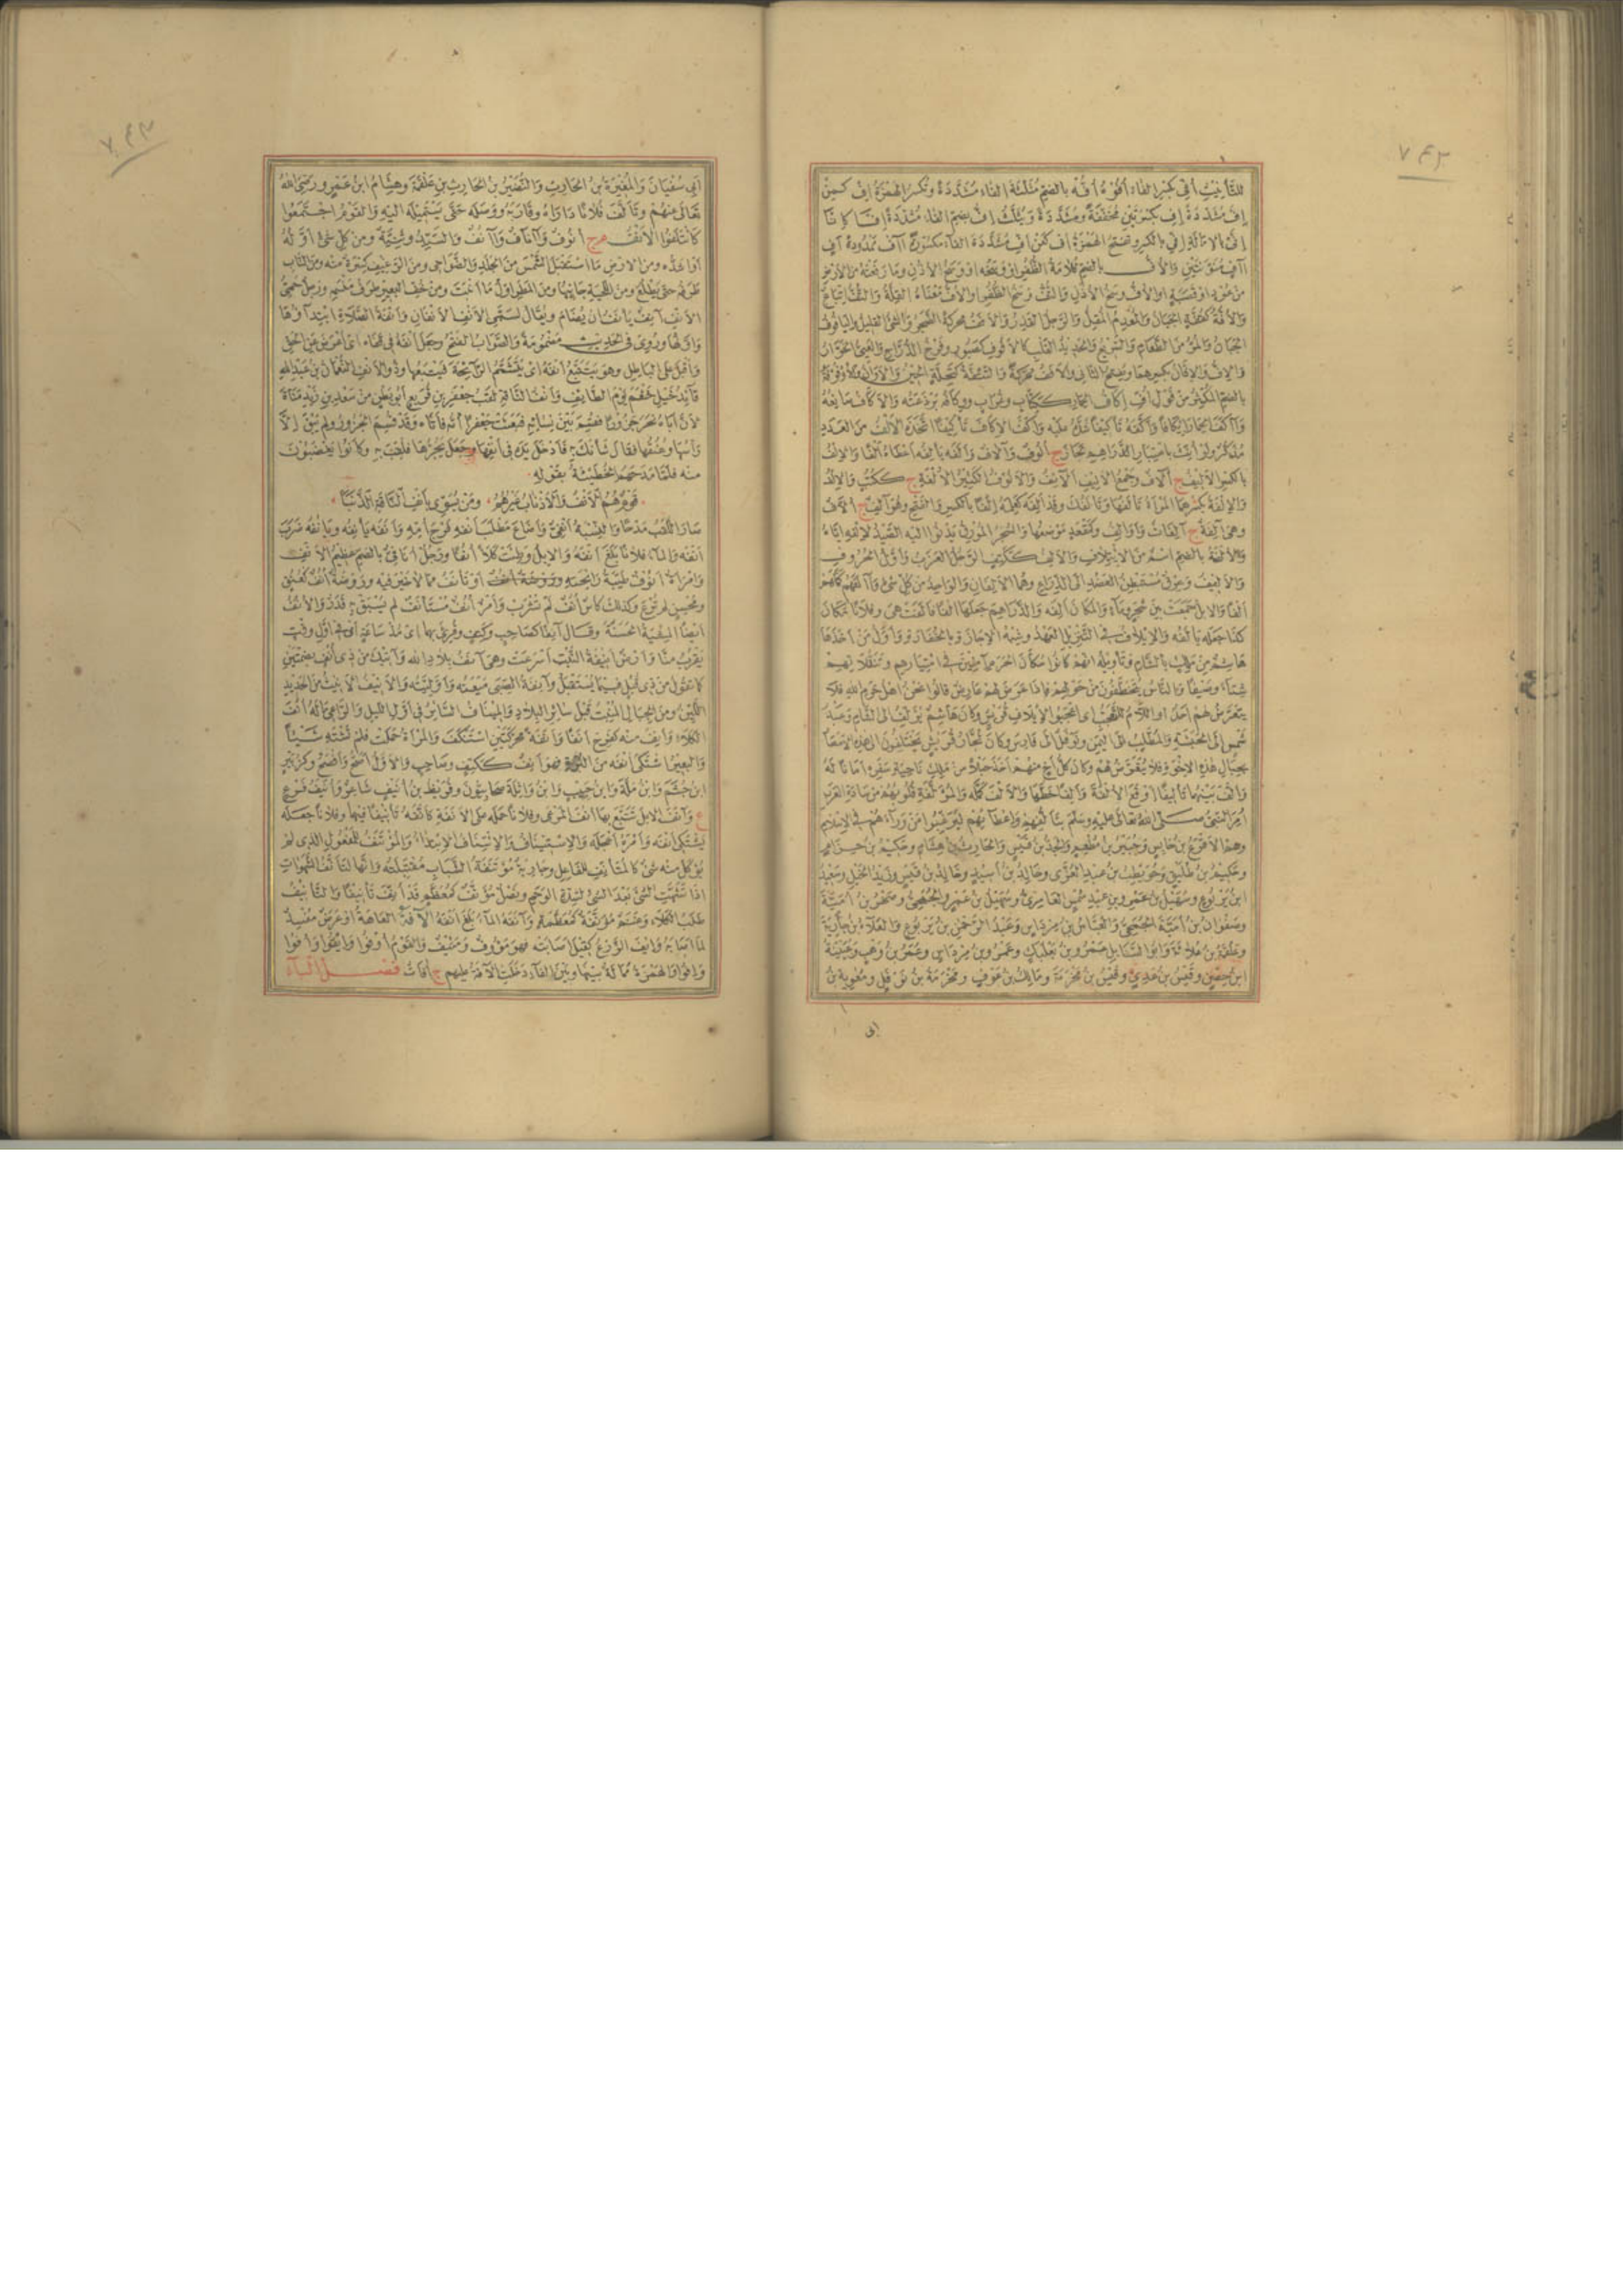 ٧٤٢
للتأنيث أفّي بكسر الفاء أُفُّوهْ أُفُّهْ بالضم مثلثة الفاء مشددة وتكسر الهمزة إِفْ كمِنْ
إفّ مشددة إفٍ بكسرتين مخففة ومشددة وتثلث إفُّ بضم الفاء مشددة إفّا كإنّا
إفّى بالإمالة إفّي بالكسر وتفتح الهمزة أَفْ كعَنْ أفِّ مشددة الفاء مكسورة آفْ ممدودة آفٍ
آآفٍ منونتين والأف بالضم قلامة الظفر او وسخه او وسخ الأذن وما رفعته من الأرض
من عود او قصبة او الأف وسخ الأذن والتف وسخ الظفر او الأف معناه القلة والتف اتباع
والأفة كقفة الجبان والمعدم المقل والرجل القذر والأفف محركة الضجر والشئ القليل واليأفوف
الجبان والمر من الطعام والسريع والحديد القلب كالأفوف كصبور وفرخ الدراج والعيي الخوار
والإف والإفان بكسرهما ويفتح الثاني والأفف محركة والتئفة كتحلة الحين والاوان
بالضم المكثر من قول أف إكاف الحمار ككتاب وغراب ووكافه برذعته والأكاف صانعه
وآكف الحمار إيكافا وأكفه تأكيفا شده عليه وأكف الإكاف تأكيفا اتخذه الألف من العدد
مذكر ولو أنث باعتبار الدراهم لجاز ج ألوف وآلاف وألفه يألفه أعطاه ألفا والإلف
بالكسر الأليف ج آلاف وجمع الأليف ألائف والألوف الكثير الألفة ج ككتب والإلف
والإلفة بكسرهما المرأة تألفها وتألفك وقد ألفه كعلمه إلفا بالكسر والفتح وهو آلف ج ألاف
وهى آلفة ج آلفات وأوالف وكمقعد موضعها والشجر المورق يدنوا اليه الصيد لإلفه إياه
والألفة بالضم اسم من الإئتلاف والألف ككتف الرجل العزب وأول الحروف
والأليف وعرق مستبطن العضد الى الذراع وهما الألفان والواحد من كل شئ وآلفهم كملهم
ألفا والإبل جمعت بين شجر وماء والمكان ألفه والدراهم جعلها ألفا فآلفت هى وفلانا مكان
كذا جعله يألفه والإيلاف فى التنزيل العهد وشبه الإجازة بالخفارة وأول من أخذها
هاشم من ملك الشام وتأويله انهم كانوا سكان الحرم آمنين فى امتيارهم وتنقلاتهم
شتاء وصيفا والناس يتخطفون من حولهم فاذا عرض لهم عارض قالوا نحن اهل حرم الله فلا
يتعرض لهم احد او اللام للتعجب اى اعجبوا لإيلاف قريش وكان هاشم يؤلف الى الشام وعبد
شمس الى الحبشة والمطلب الى اليمن ونوفل الى فارس وكان تجار قريش يختلفون الى هذه الامصار
بحبال هذه الإخوة فلا يتعرض لهم وكان كل أخ منهم أخذ حبلا من ملك ناحية سفره أمانا له
وألف بينهما تأليفا أوقع الألفة وألفا خطها والألف كمله والمؤلفة قلوبهم من سادة العرب
أمر النبى صلى الله تعالى عليه وسلم بتألفهم وإعطائهم ليرغبوا من وراءهم فى الإسلام
وهم الأقرع بن حابس وجبير بن مطعم والجد بن قيس والحارث بن هشام وحكيم بن حزام
وحكيم بن طليق وحويطب بن عبد العزى وخالد بن أسيد وخالد بن قيس وزيد الخيل وسعيد
ابن يربوع وسهيل بن عمرو بن عبد شمس العامرى وسهيل بن عمرو الجمحى وصخر بن أمية
وصفوان بن أمية الجمحى والعباس بن مرداس وعبد الرحمن بن يربوع والعلاء بن جارية
وعلقمة بن علاثة وابو السنابل عمرو بن بعكك وعمرو بن مرداس وعمير بن وهب وعيينة
ابن حصن وقيس بن عدى وقيس بن مخرمة ومالك بن عوف ومخرمة بن نوفل ومعوية بن
أبى
٧٤٣
أبى سفيان والمغيرة بن الحارث والنضير بن الحارث بن علقمة وهشام ابن عمرو رضى الله
تعالى عنهم وتألف فلانا داراه وقاربه ووصله حتى يستميله اليه والقوم اجتمعوا
كائتلفوا الأنف م ج أنوف وآناف وآنف والسيد وثنية ومن كل شئ اوله
او أشده ومن الارض ما استقبل الشمس من الجلد والضواحى ومن الرغيف كسرة منه ومن الناب
طرفه حين يطلع ومن اللحية جانبها ومن المطر اول ما أنبت ومن خف البعير طرف منسمه ورجل حمى
الأنف آنف يأنف أن يضام ويقال لسمى الأنف الأنفان وأنفة الصلاة ابتداؤها
واولها وروى فى الحديث مضمومة والصواب الفتح وجعل أنفه فى قفاه اى أعرض عن الحق
وأقبل على الباطل وهو يتتبع أنفه اى يتشمم الرائحة فيتبعها وذو الأنف النعمان بن عبد الله
قائد خيل خثعم يوم الطائف وأنف الناقة لقب جعفر بن قريع ابو بطن من سعد بن زيد مناة
لأن أباه نحر جزورا فقسم بين نسائه فبعثت جعفرا أمه فأتاه وقد قسم الجزور ولم يبق إلا
رأسها وعنقها فقال شأنك به فأدخل يده فى أنفها وجعل يجرها فلقب به وكانوا يغضبون
منه فلما مدحهم الحطيئة بقوله
قوم هم الأنف والأذناب غيرهم ومن يسوى بأنف الناقة الذنبا
صار اللقب مدحا والنسبة أنفى وأضاع مطلب أنفه فرج أمه وأنفه يأنفه ويأنفه ضرب
أنفه والماء فلانا بلغ أنفه والإبل وطئت كلأ أنفا ورجل أنافى بالضم عظيم الأنف
وامرأة أنوف طيبة رائحته وروضة أنف كعنق
ومحسن لم ترع وكذلك كأس أنف لم تشرب وأمر أنف مستأنف لم يسبق به قدر والأنف
أيضا المشية الحسنة وقال آنفا كصاحب وكتف وقرئ بهما اى مذ ساعة اى فى اول وقت
يقرب منا وأرض أنيفة النبت أسرعت وهى آنف بلاد الله وآتيك من ذى أنف بضمتين
كما تقول من ذى قبل فيما يستقبل وآنفة الصبى ميعته وأوليته والأنيف الأنيث من الحديد
اللين ومن الجبال المنبت قبل سائر البلاد والمئناف السائر فى أول الليل والراعى ماله أنف
الكلأ وأنف منه كفرح أنفا وأنفة محركتين استنكف والمرأة حملت فلم تشته شيئا
والبعير اشتكى أنفه من البرة فهو آنف ككتف وصاحب والأول أصح وأفصح وكزبير
ابن جشم وابن ملة وابن حبيب وابن واثلة صحابيون وقريط بن أنيف شاعر وأنيف فرع
ع وآنف الابل تتبع بها أنف المرعى وفلانا حمله على الأنفة كأنفه تأنيفا فيهما وفلانا جعله
يشتكى أنفه وأمره أعجله والإستئناف والإئتناف الإبتداء والمؤتنف للمفعول الذى لم
يؤكل منه شئ كالمتأنف للفاعل وجارية مؤتنفة الشباب مقتبلته وانها لتتأنف الشهوات
اذا تشهت الشئ بعد الشئ لشدة الوحم ونصل مؤنف كمعظم قد أنف تأنيفا والتأنيف
طلب الكلأ وغنم مؤنفة كمعظمة وآنفه الماء بلغ أنفه الآفة العاهة او عرض مفسد
لما أصابه وايف الزرع كقيل أصابته فهو مؤوف ومئيف والقوم أوفوا وايفوا وافوا
وإفوا الهمزة ممالة بينها وبين الفاء دخلت الآفة عليهم ج آفات فصل الباء